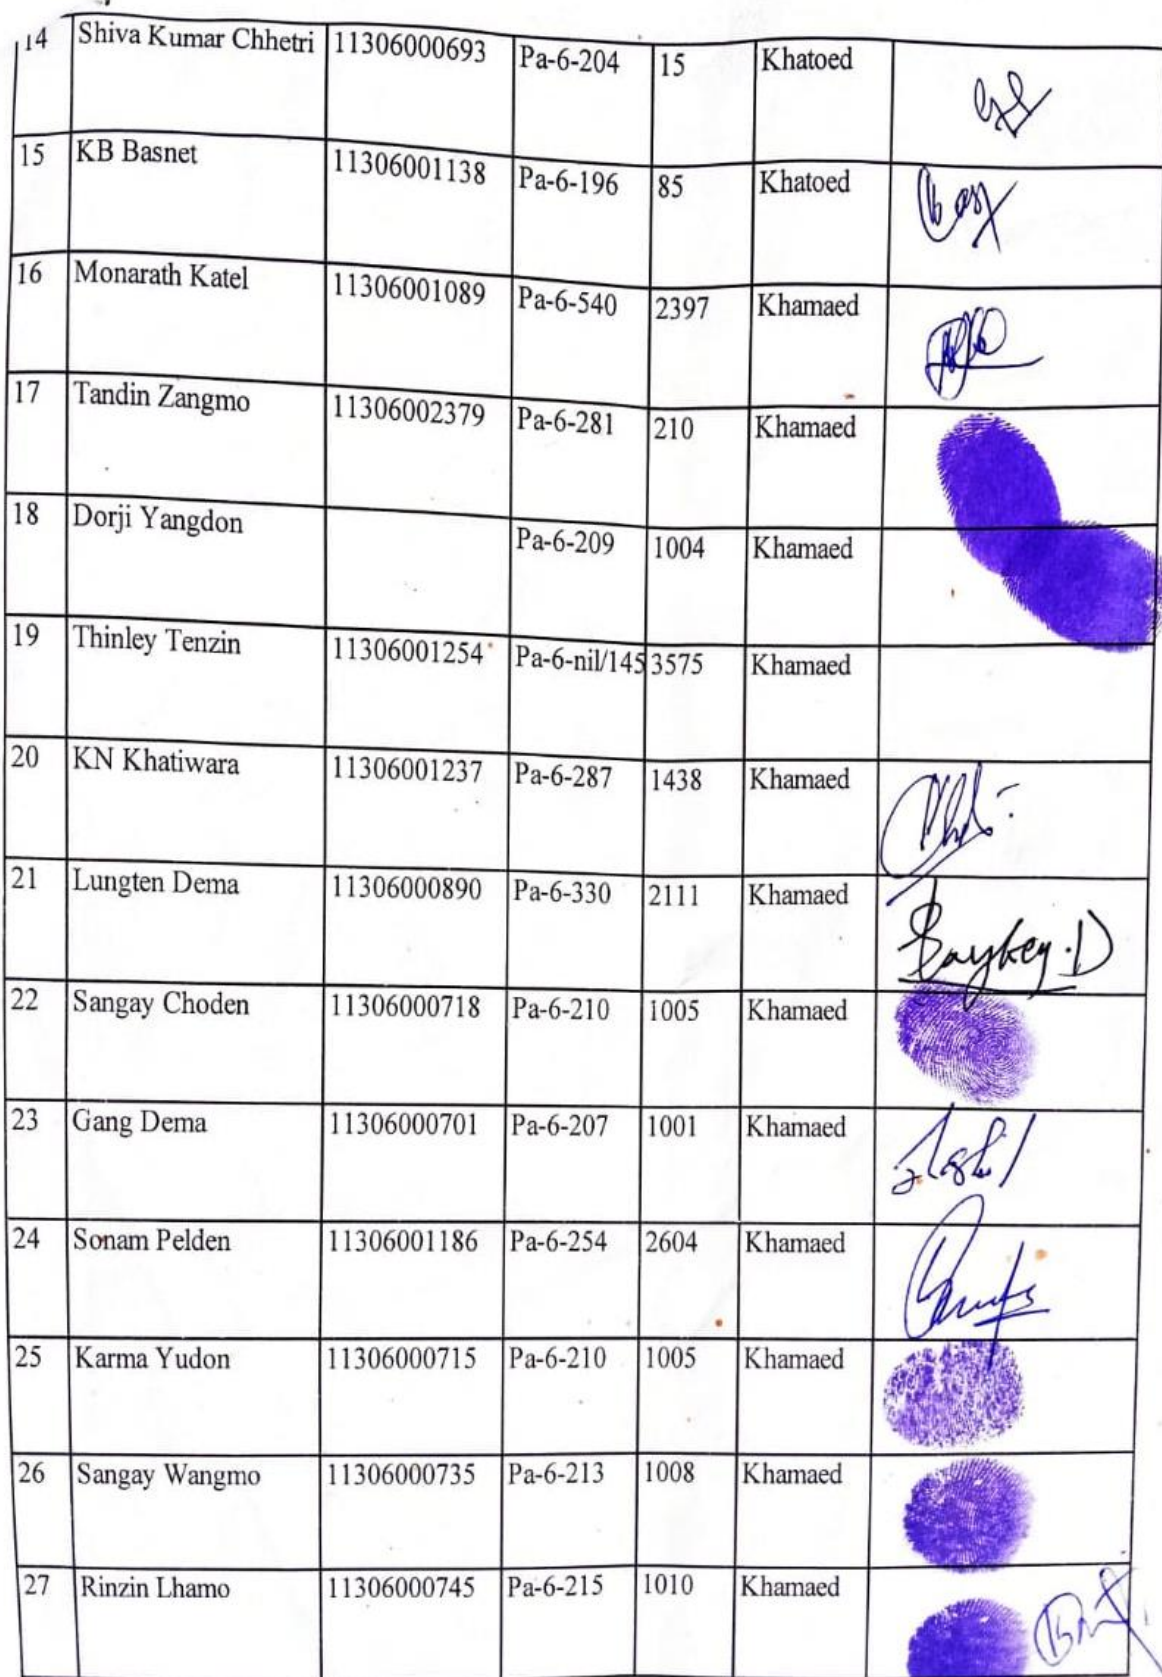 14 Shiva Kumar Chhetri 11306000693 Pa-6-204 15 Khatoed
15 KB Basnet 11306001138 Pa-6-196 85 Khatoed
16 Monarath Katel 11306001089 Pa-6-540 2397 Khamaed
17 Tandin Zangmo 11306002379 Pa-6-281 210 Khamaed
18 Dorji Yangdon Pa-6-209 1004 Khamaed
19 Thinley Tenzin 11306001254 Pa-6-nil/145 3575 Khamaed
20 KN Khatiwara 11306001237 Pa-6-287 1438 Khamaed
21 Lungten Dema 11306000890 Pa-6-330 2111 Khamaed
22 Sangay Choden 11306000718 Pa-6-210 1005 Khamaed
23 Gang Dema 11306000701 Pa-6-207 1001 Khamaed
24 Sonam Pelden 11306001186 Pa-6-254 2604 Khamaed
25 Karma Yudon 11306000715 Pa-6-210 1005 Khamaed
26 Sangay Wangmo 11306000735 Pa-6-213 1008 Khamaed
27 Rinzin Lhamo 11306000745 Pa-6-215 1010 Khamaed